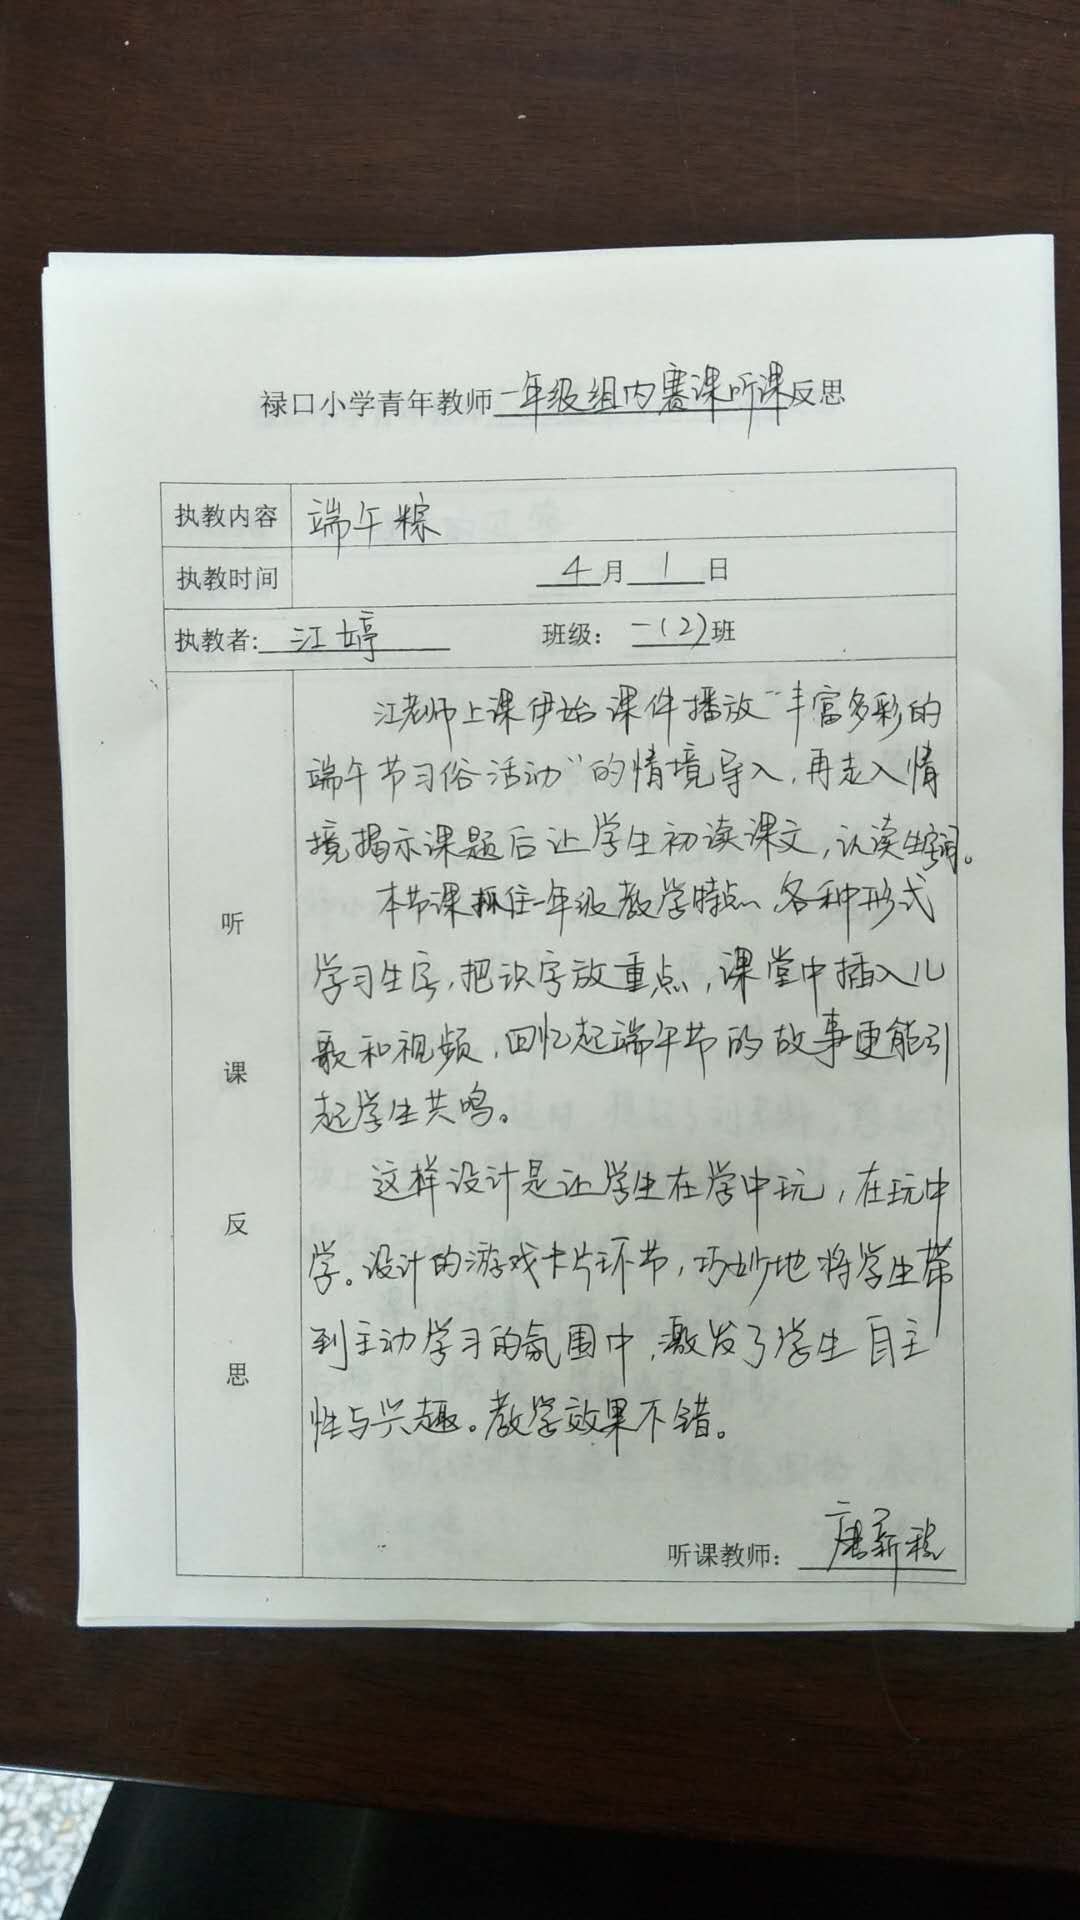 禄口小学青年教师一年级组内赛课听课反思
执教内容 端午粽
执教时间 4月1日
执教者: 江婷 班级: 一(2)班
听课反思
江老师上课伊始课件播放“丰富多彩的
端午节习俗活动”的情境导入,再走入情
境揭示课题后让学生初读课文,认读生字词。
本节课抓住一年级教学特点、各种形式
学习生字,把识字放重点,课堂中插入儿
歌和视频,回忆起端午节的故事更能引
起学生共鸣。
这样设计是让学生在学中玩,在玩中
学。设计的游戏卡片环节,巧妙地将学生带
到主动学习的氛围中,激发了学生自主
性与兴趣。教学效果不错。
听课教师: 唐新